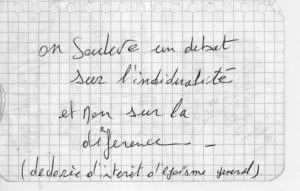 on Souleve un debat
sur l'individualité
et Non sur la
diference - -
( d'interet d'egoïsme general).